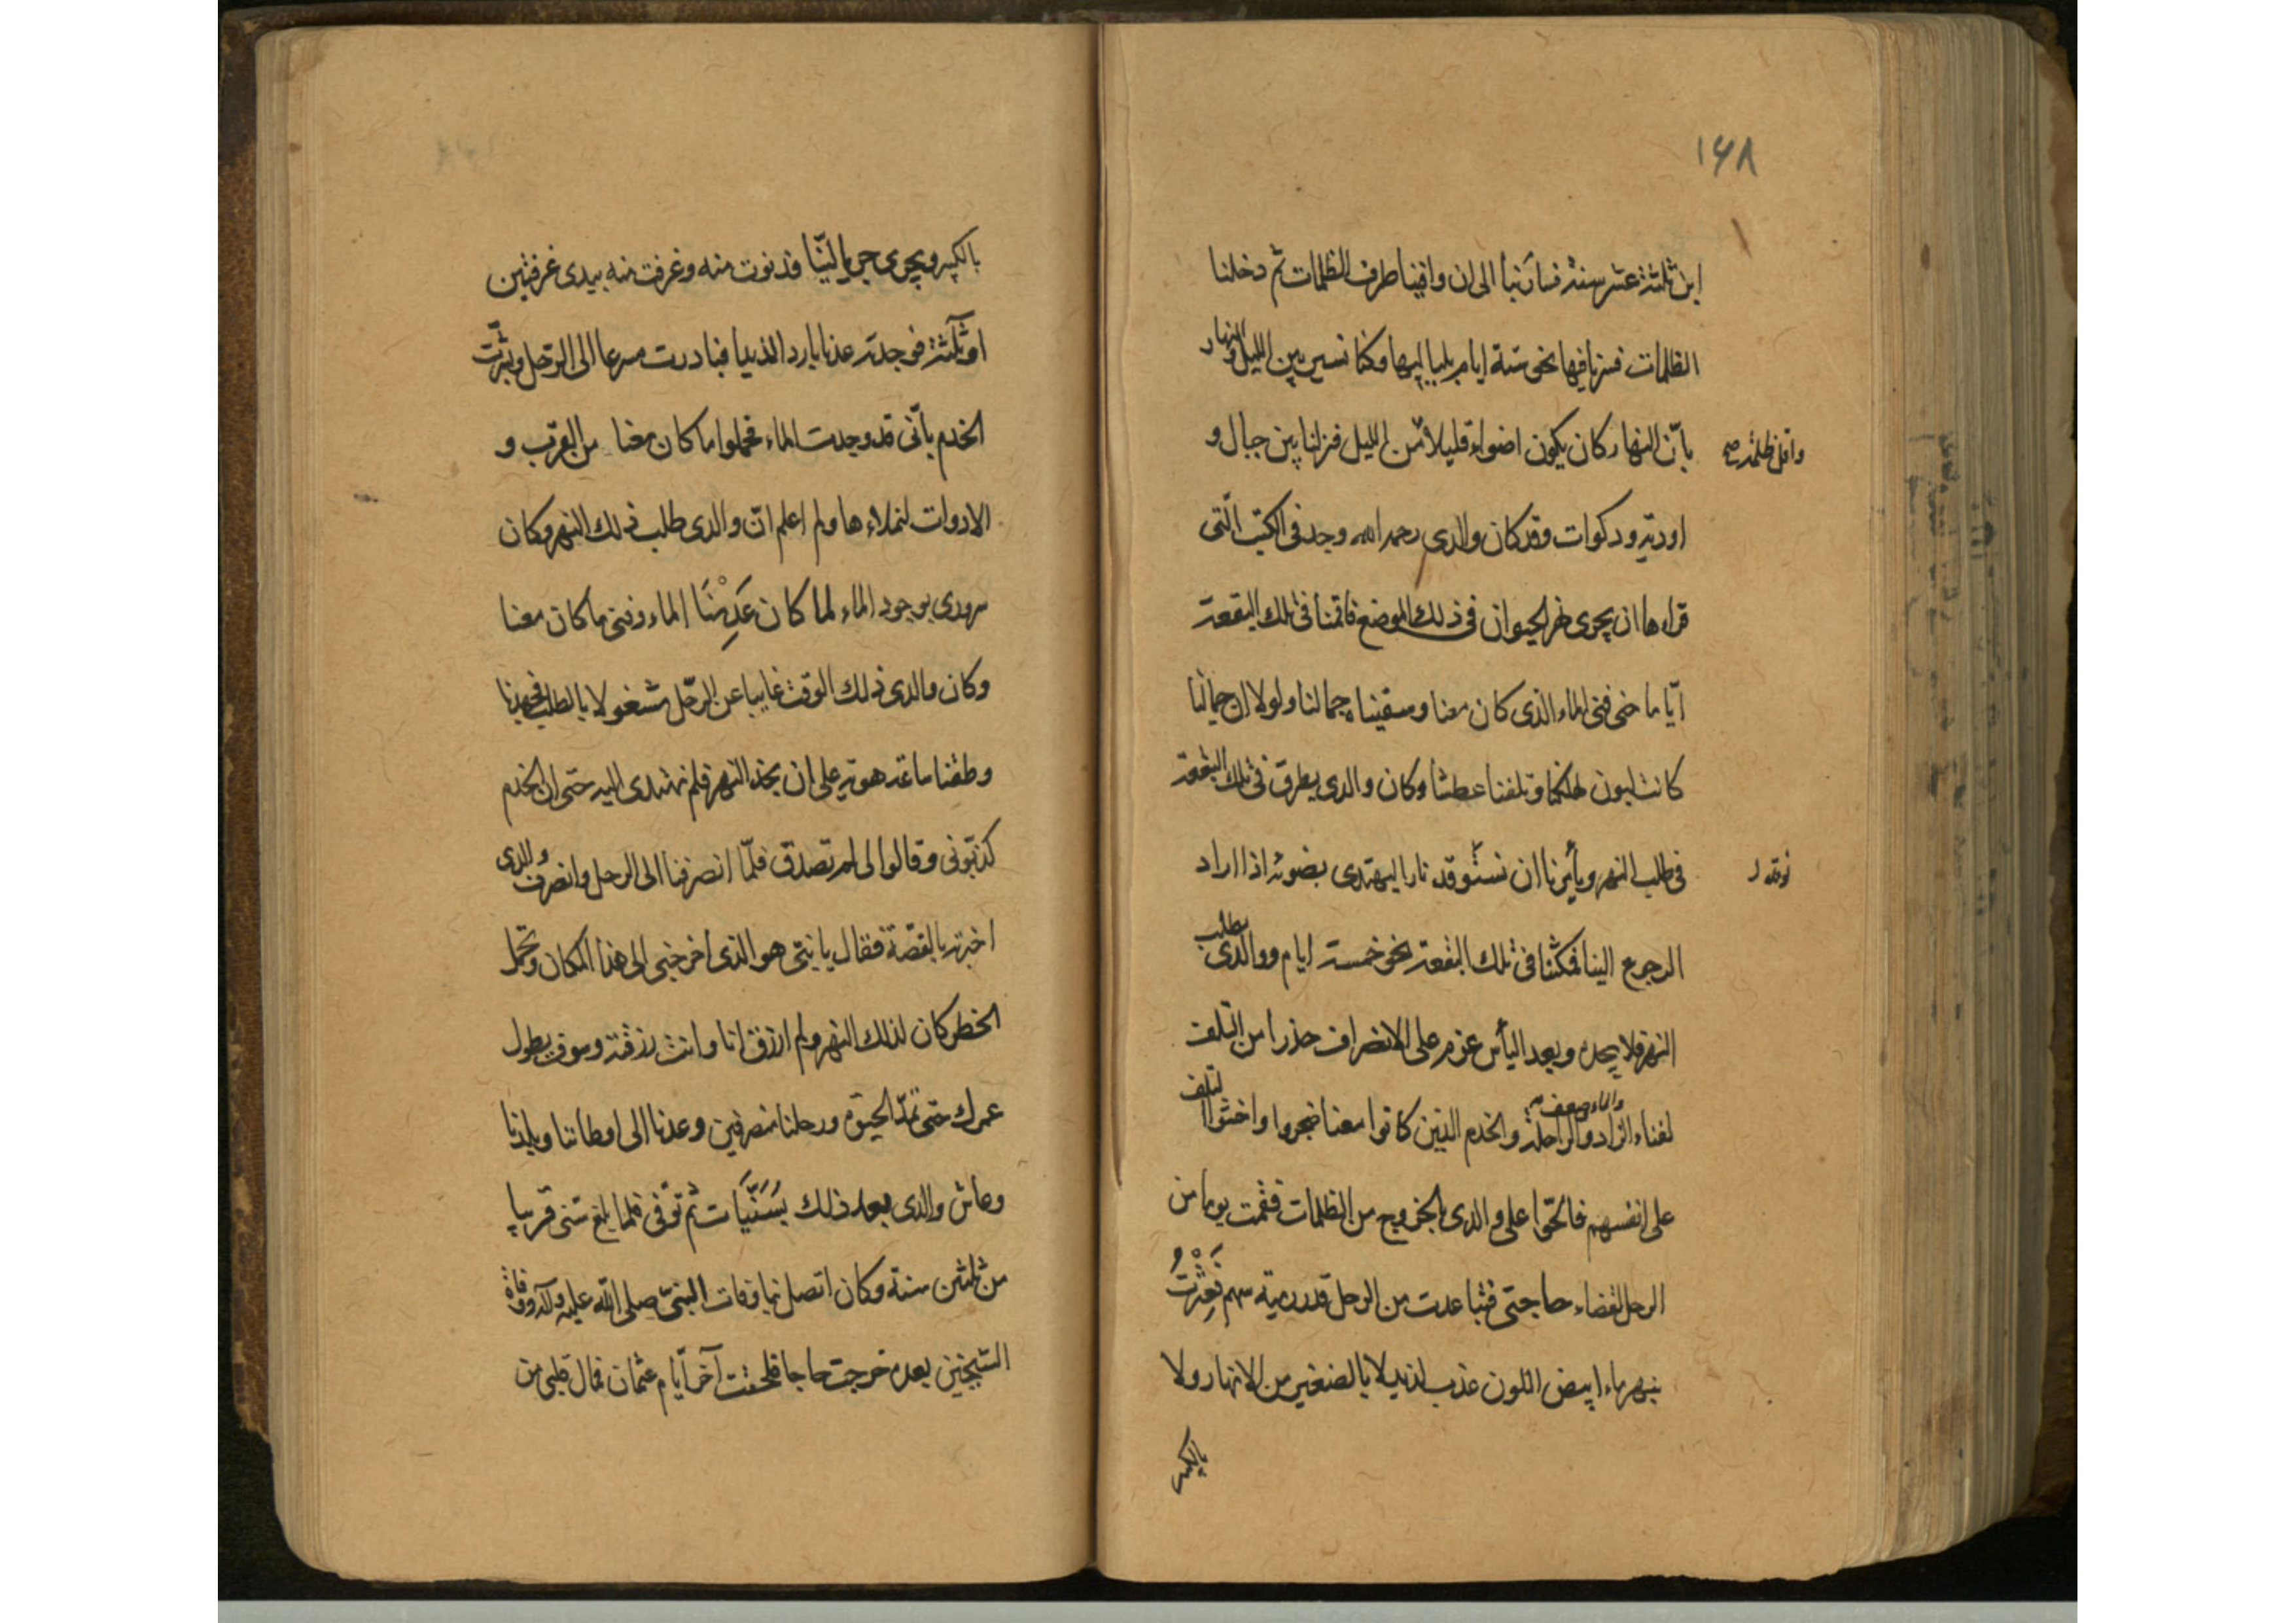 ١٤٨
ابن ثلثة عشر سنة فسارنبا الى ان وافينا طرف الظلمات ثم دخلنا
الظلمات فسرنا فيها نحو ستة ايام بلياليها وكنا نسير بين الليل والنهار
بانّ النهار كان يكون اضواء قليلا من الليل فنزلنا بين جبال و
واقل ظلمة صح
اودية ودكوات وقد كان والدى رحمه الله وجد فى الكتب الّتى
قراءها ان يجرى نهر الحيوان فى ذلك الموضع فاقمنا فى تلك البقعة
ايّاما حتى فنى الماء الذى كان معنا وسقيناه جمالنا ولولا ان جمالنا
كانت لبون لهلكنا وتلفنا عطشا وكان والدى يطرق فى تلك البقعة
فى طلب النهر ويأمرنا ان نستوقد نارا ليهتدى بضوئه اذا اراد
نوقد ل
الرجوع الينا فمكثنا فى تلك البقعة نحو خمسة ايام ووالدى يطلب
النهر فلا يجده وبعد اليأس عزم على الانصراف حذرا من التلف
لفناء الزاد والماء والراحلة والخدم الذين كانوا معنا ضجروا واخشوا التلف
على انفسهم فالحّوا على والدى بالخروج من الظلمات فقمت يوما من
الرحل لقضاء حاجتى فتباعدت من الرحل قدر رمية سهم فَعَثَرْتُ
بنهر ماء ابيض اللون عذب لذيذ لا بالصغير من الانهار ولا
بالكبير
بالكبير ويجرى جريا ليّنا فدنوت منه وغرفت منه بيدى غرفتين
او ثلثة فوجدته عذبا باردا لذيذا فبادرت مسرعا الى الرحل وبشّرت
الخدم بانّى قد وجدت الماء فحملوا ما كان معنا من القرب و
الادوات لنملاءها ولم اعلم انّ والدى طلب ذلك النهر وكان
سرورى بوجود الماء لما كان عَدِمْنَا الماء وفنى ما كان معنا
وكان والدى ذلك الوقت غايبا عن الرحل مشغولا بالطلب فجهدنا
وطفنا ساعة هوية على ان نجد النهر فلم نهتدى اليه حتى ان الخدم
كذّبونى وقالوا لى لم تصدق فلمّا انصرفنا الى الرحل وانصرف والدى
اخبرته بالقصّة فقال يا بنىّ هو الذى اخرجنى الى هذا المكان وتحمّل
الخطر كان لذلك النهر ولم ارزق انا وانت رزقته وسوف يطول
عمرك حتى تملّ الحيوة ورحلنا منصرفين وعدنا الى اوطاننا وبلدنا
وعاش والدى بعد ذلك سُنَيَّات ثم توفى فلما بلغ سنى قريبا
من ثلثين سنة وكان اتصل بنا وفات النبىّ صلى الله عليه وآله ووفاة
الشيخين بعده خرجت حاجا فلحقت آخر ايّام عثمان فمال قلبى من